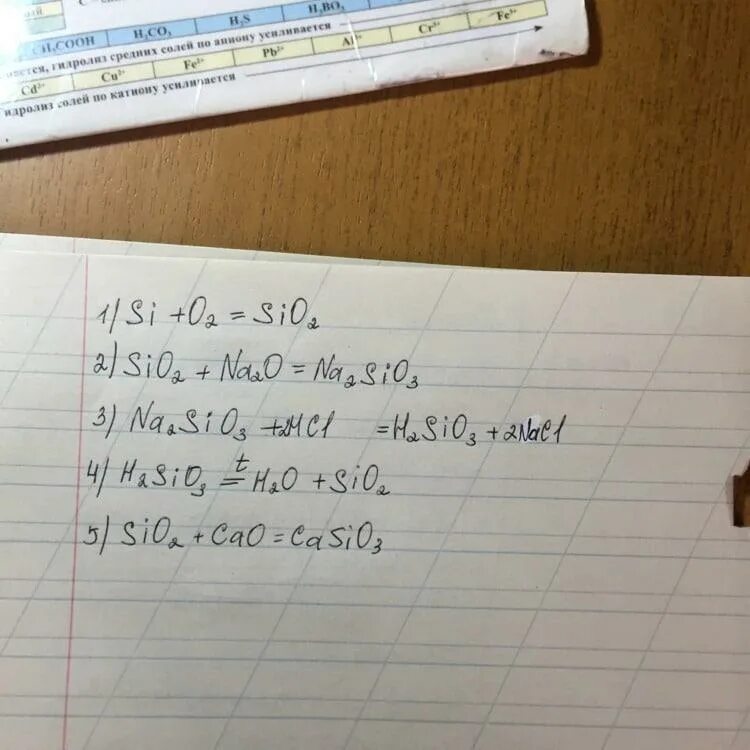 H₃COOH H₂CO₃ H₂S H₃BO₃
ается, гидролиз средних солей по аниону усиливается
Cd²⁺ Cu²⁺ Fe²⁺ Pb²⁺ Al³⁺ Cr³⁺ Fe³⁺
идролиз солей по катиону усиливается
1) Si + O₂ = SiO₂
2) SiO₂ + Na₂O = Na₂SiO₃
3) Na₂SiO₃ + 2HCl = H₂SiO₃ + 2NaCl
4) H₂SiO₃ =ᵗ H₂O + SiO₂
5) SiO₂ + CaO = CaSiO₃